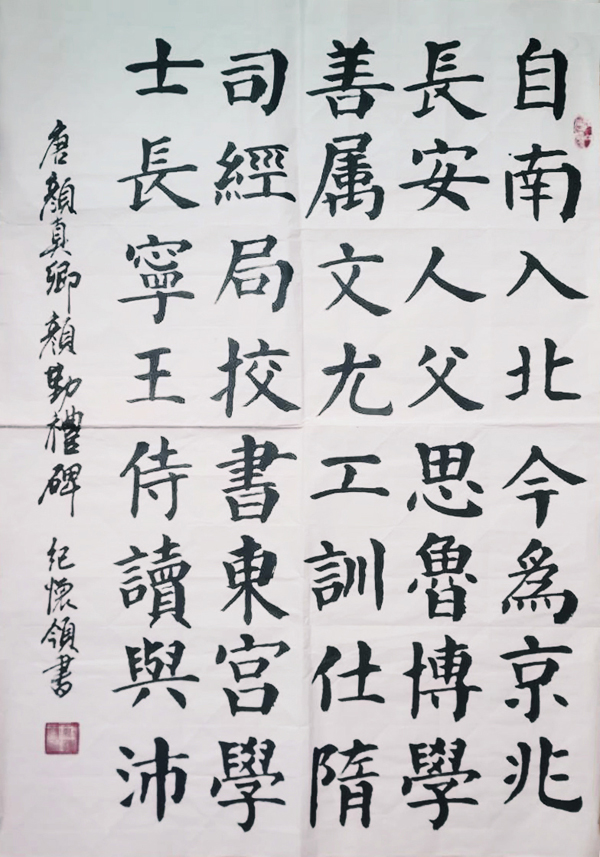 自南入北今為京兆
長安人父思魯博學
善属文尤工訓仕隋
司經局挍書東宮學
士長寧王侍讀與沛
唐顏真卿顏勤禮碑 紀懷領書